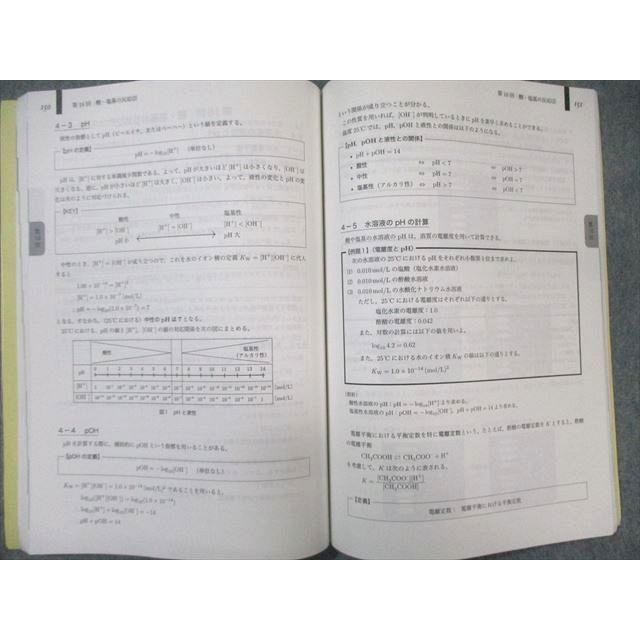 150
第10回 酸・塩基の反応(2)
4－3 pH
液性の指標として pH(ピーエイチ、またはペーハー)という値を定義する。
【pHの定義】
pH = −log₁₀[H⁺] (単位なし)
pH は、[H⁺] に対する単調減少関数である。よって、pH が大きいほど [H⁺] は小さくなり、[OH⁻] は
大きくなる。逆に、pH が小さいほど [H⁺] は大きく、[OH⁻] は小さい。よって、液性の変化と pH の変
化は次のように対応づけられる。
【KEY】
酸性 中性 塩基性
[H⁺] > [OH⁻] [H⁺] = [OH⁻] [H⁺] < [OH⁻]
pH 小 pH 大
中性のとき、[H⁺] = [OH⁻] が成り立つので、これを水のイオン積の定義 Kw = [H⁺][OH⁻] に代入
すると、
1.00 × 10⁻¹⁴ = [H⁺]²
[H⁺] = 1.0 × 10⁻⁷ (mol/L)
pH = −log₁₀(1.0 × 10⁻⁷) = 7
となる。すなわち、(25℃における) 中性の pH は 7 となる。
25℃における、pH の値と [H⁺]、[OH⁻] の値の対応関係を次の図にまとめる。
酸性 塩基性
(アルカリ性)
pH 0 1 2 3 4 5 6 7 8 9 10 11 12 13 14
[H⁺] [mol/L]
[OH⁻] [mol/L]
図1 pH と液性
4－4 pOH
pH を計算する際に、補助的に pOH という指標を用いることがある。
【pOHの定義】
pOH = −log₁₀[OH⁻] (単位なし)
Kw = [H⁺][OH⁻] = 1.0 × 10⁻¹⁴ (mol/L)² であることを用いると、
log₁₀([H⁺][OH⁻]) = log₁₀(1.0 × 10⁻¹⁴)
log₁₀[H⁺] + log₁₀[OH⁻] = −14
pH + pOH = 14
第10回 酸・塩基の反応(2)
151
という関係が成り立つことが分かる。
この性質を用いれば、[OH⁻] が判明しているときに pH を素早く求めることができる。
温度 25℃では、pH、pOH と液性との関係は以下のようになる。
【pH, pOH と液性との関係】
• pH + pOH = 14
• 酸性 ⇔ pH < 7 ⇔ pOH > 7
• 中性 ⇔ pH = 7 ⇔ pOH = 7
• 塩基性(アルカリ性) ⇔ pH > 7 ⇔ pOH < 7
4－5 水溶液の pH の計算
酸や塩基の水溶液の pH は、溶質の電離度を用いて計算できる。
【例題1】(電離度と pH)
次の水溶液の 25℃における pH をそれぞれ小数第1位まで求めよ。
(1) 0.010 mol/L の塩酸(塩化水素水溶液)
(2) 0.010 mol/L の酢酸水溶液
(3) 0.010 mol/L の水酸化ナトリウム水溶液
ただし、25℃における電離度はそれぞれ以下の通りとする。
塩化水素の電離度：1.0
酢酸の電離度：0.042
また、対数の計算には以下の値を用いよ。
log₁₀ 4.2 = 0.62
また、25℃における水のイオン積 Kw の値は以下の通りとする。
Kw = 1.0 × 10⁻¹⁴ (mol/L)²
(指針)
酸性水溶液の pH：pH = −log₁₀[H⁺] より求める。
塩基性水溶液の pH：pOH = −log₁₀[OH⁻]、pH + pOH = 14 より求める。
電離平衡における平衡定数を特に電離定数という。たとえば、酢酸の電離定数を K とすると、酢酸
の電離平衡
CH₃COOH ⇄ CH₃COO⁻ + H⁺
を考慮して、K は次のように表される。
K = [CH₃COO⁻][H⁺] / [CH₃COOH]
【定義】
電離定数： 電離平衡における平衡定数